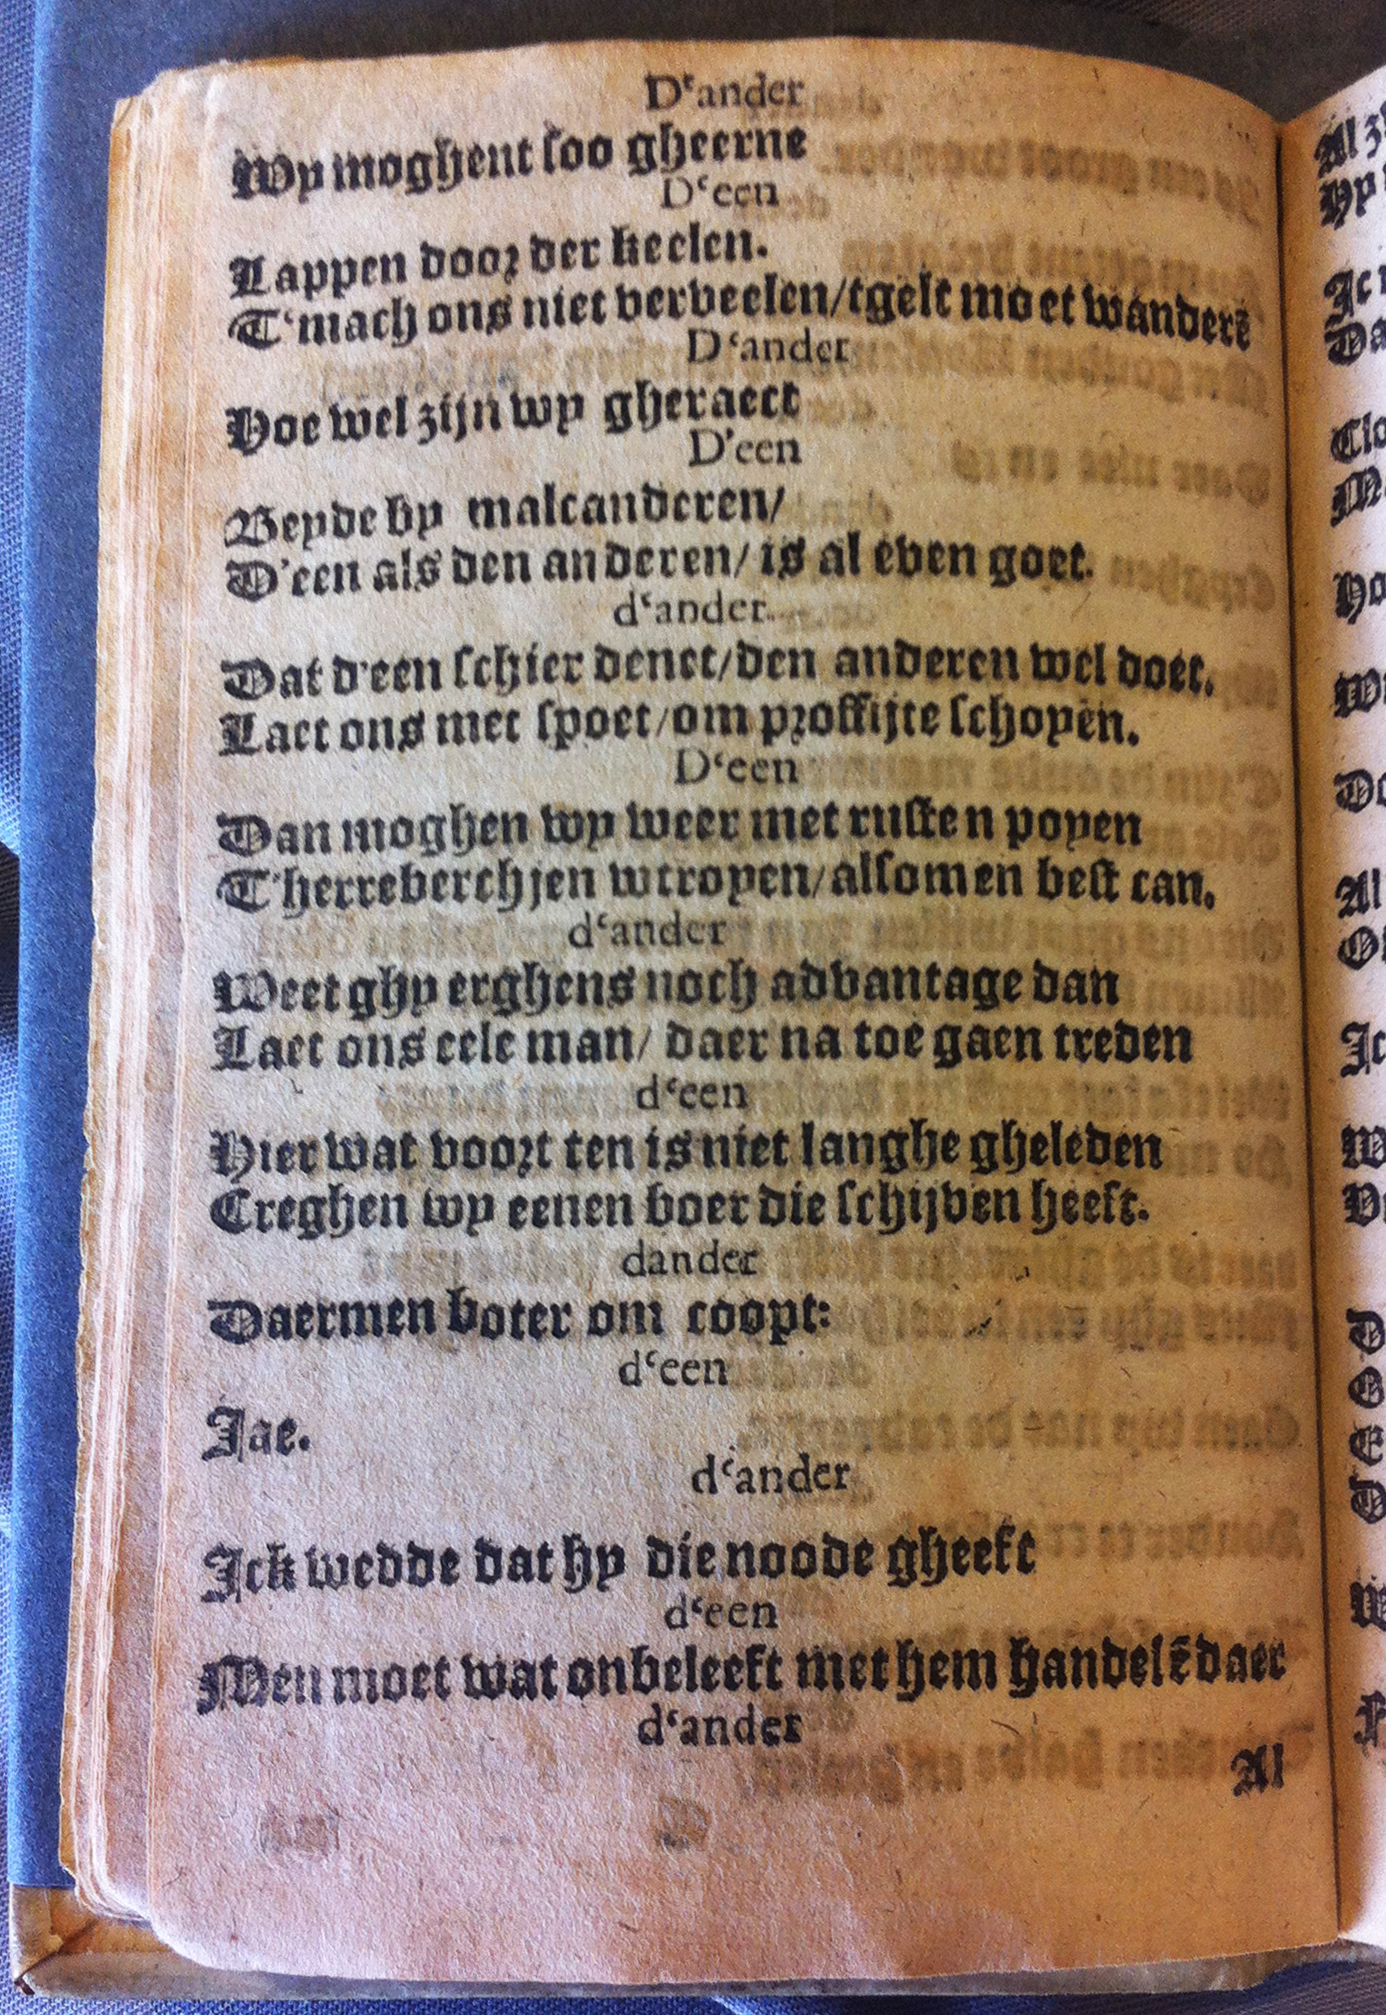 D‘ander
Wy moghent soo gheerne
D‘een
Lappen door der keelen.
T‘mach ons niet verveelen/tgelt moet wanderē
D‘ander
Hoe wel zijn wy gheraect
D’een
Beyde by malcanderen/
D’een als den anderen/ is al even goet.
d‘ander
Dat d'een schier denct/den anderen wel doet.
Laet ons met spoet/om proffijte schoyen.
D‘een
Dan moghen wy weer met rusten poyen
T'herreberchjen wtroyen/alsomen best can.
d‘ander
Weet ghy erghens noch advantage dan
Laet ons eele man/ daer na toe gaen treden
d‘een
Hier wat voort ten is niet langhe gheleden
Creghen wy eenen boer die schijven heeft.
dander
Daermen boter om coopt:
d‘een
Jae.
d‘ander
Ick wedde dat hy die noode gheeft
d‘een
Men moet wat onbeleeft met hem handelē daer
d‘ander
Al